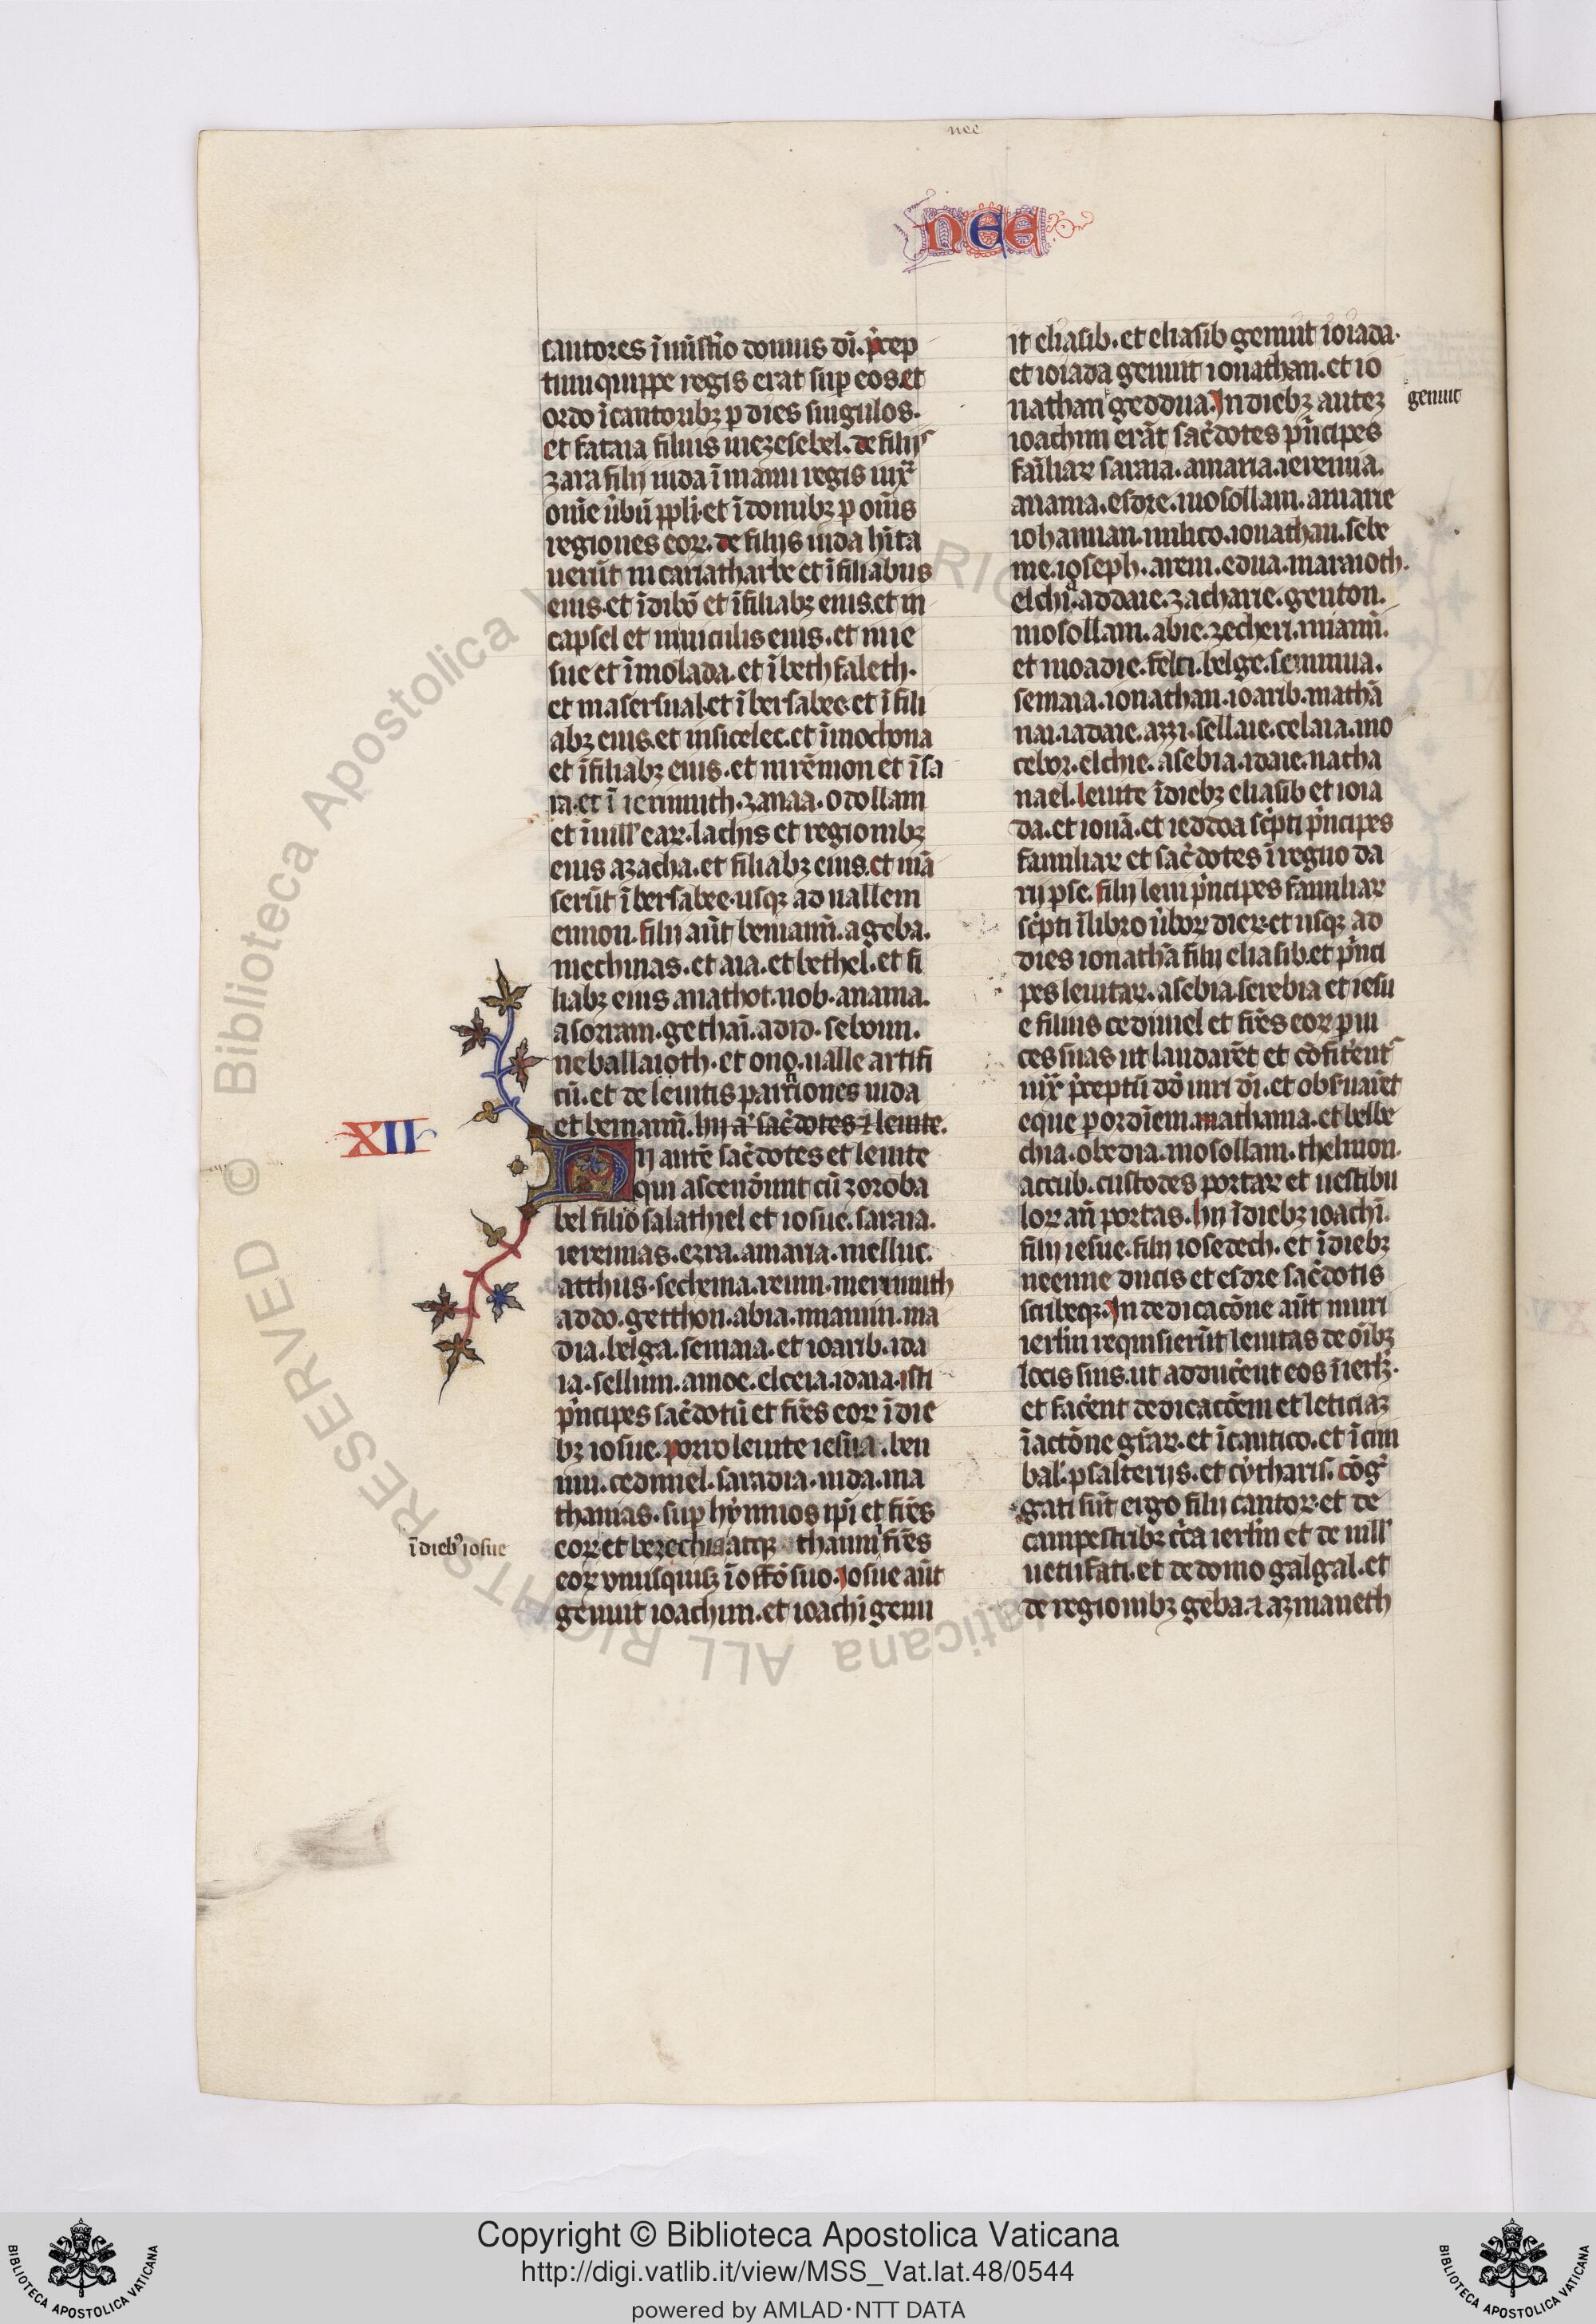 nee
NEE
cantores ī mīst̄io domus dī. p̄cep
tum quippe regis erat sup eos. et
ordo ī cantoribꝫ p dies singulos.
et fataia filius mezesebel. de filijs
zara filij iuda ī manu regis iuxͣ
om̄e ūbū ppli. et ī domibꝫ p om̄s
regiones eoꝝ. de filijs iuda hīta
uerūt in cariatharbe et ī filiabus
eius. et ī dibō et ī filiabꝫ eius. et in
capsel et inuiculis eius. et in ie
sue et ī molada. et ī bethfaleth.
et in asersual. et ī bersabee. et ī fili
abꝫ eius. et in sicelec. et ī mochona
et ī filiabꝫ eius. et in rēmon et ī sa
ra. et ī ierimuth. zanaa. odollam
et ī uill' eaꝝ. lachis et regionibꝫ
eius azacha. et filiabꝫ eius. et mā
serūt ī bersabee. usqꝫ ad uallem
ennon. filij aūt beniamī. a geba.
mechmas. et aia. et bethel. et fi
liabꝫ eius anathot. nob. anania.
asoriam. gethaī. adid. seboim.
neballaioth. et ono. ualle artifi
cū. et de leuitis partiones iuda
et beniamī. hij a' sac̄dotes ⁊ leuite.
XII
Hij autē sac̄dotes et leuite
qui ascend̄unt cū zoroba
bel filio salathiel et iosue. saraia.
ieremias. ezra. amaria. melluc.
atthus. sechenia. reum. merimuth
addo. getthon. abia. miamin. ma
dia. belga. semaia. et ioarib. ida
ia. sellum. amoe. elceia. idaia. isti
p̄ncipes sac̄dotū et fr̄es eoꝝ ī die
bꝫ iosue. porro leuite iesua. ben
nui. cedmiel. saradia. iuda. ma
thanias. sup hẏmnos ip̄i et fr̄es
ī dieb' iosue
eoꝝ et bezechia atqꝫ thanni fr̄es
eoꝝ vnusquisqꝫ ī offō suo. Iosue aūt
genuit ioachim. et ioachī genu
it eliasib. et eliasib genuit ioiada.
et ioiada genuit ionathan. et io
nathan geddua. In diebꝫ autez
genuit
ioachim erāt sac̄dotes p̄ncipes
fāiliaꝝ saraia. amaria. ieremia.
anania. esdre. mosollam. amarie
iohannan. milico. ionathan. sebe
nie. ioseph. arem. edua. maraioth.
elchi. addaie. zacharie. genton.
mosollam. abie. zecheri. miamī.
et moadie. felti. belge. semmua.
semaia. ionathan. ioarib. mathā
nai. iadaie. azzi. sellaie. celaia. mo
cebor. elchie. asebia. idaie. natha
nael. leuite ī diebꝫ eliasib et ioia
da. et ionā. et ieddoa sc̄pti p̄ncipes
familiaꝝ et sac̄dotes ī regno da
rij pse. filij leui p̄ncipes familiaꝝ
sc̄pti ī libro ūboꝝ dieꝝ. et usqꝫ ad
dies ionathā filij eliasib. et p̄nci
pes leuitaꝝ. asebia. serebia et iesu
e filius cedmiel et fr̄es eoꝝ p ui
ces suas ut laudarēt et cōfit̄ent
iuxͣ p̄ceptū dd̄ uiri dī. et obsuar̄et
eque p ordinem. mathania. et becbe
chia. obedia. mosollam. thelmon.
accub. custodes portaꝝ et uestibu
loꝝ an̄ portas. hij ī diebꝫ ioachī.
filij iesue. filij iosedech. et ī diebꝫ
neemie ducis et esdre sac̄dotis
scribeqꝫ. In dedicacōne aūt muri
ierl̄m requisierūt leuitas de oībꝫ
locis suis. ut adduc̄ent eos ī ierl̄ꝫ.
et fac̄ent dedicaccōem et leticiaꝫ
ī actōne gr̄aꝝ. et ī cantico. et ī cim
bal'. psalterijs. et cẏtharis. cōḡ
gati sūt ergo filij cantoꝝ. et de
campestribꝫ cc̄a ierl̄m et de uill'
netufati. et de domo galgal. et
de regionibꝫ geba. ⁊ azmaueth
Copyright © Biblioteca Apostolica Vaticana
http://digi.vatlib.it/view/MSS_Vat.lat.48/0544
powered by AMLAD·NTT DATA
BIBLIOTECA APOSTOLICA VATICANA
BIBLIOTECA APOSTOLICA VATICANA